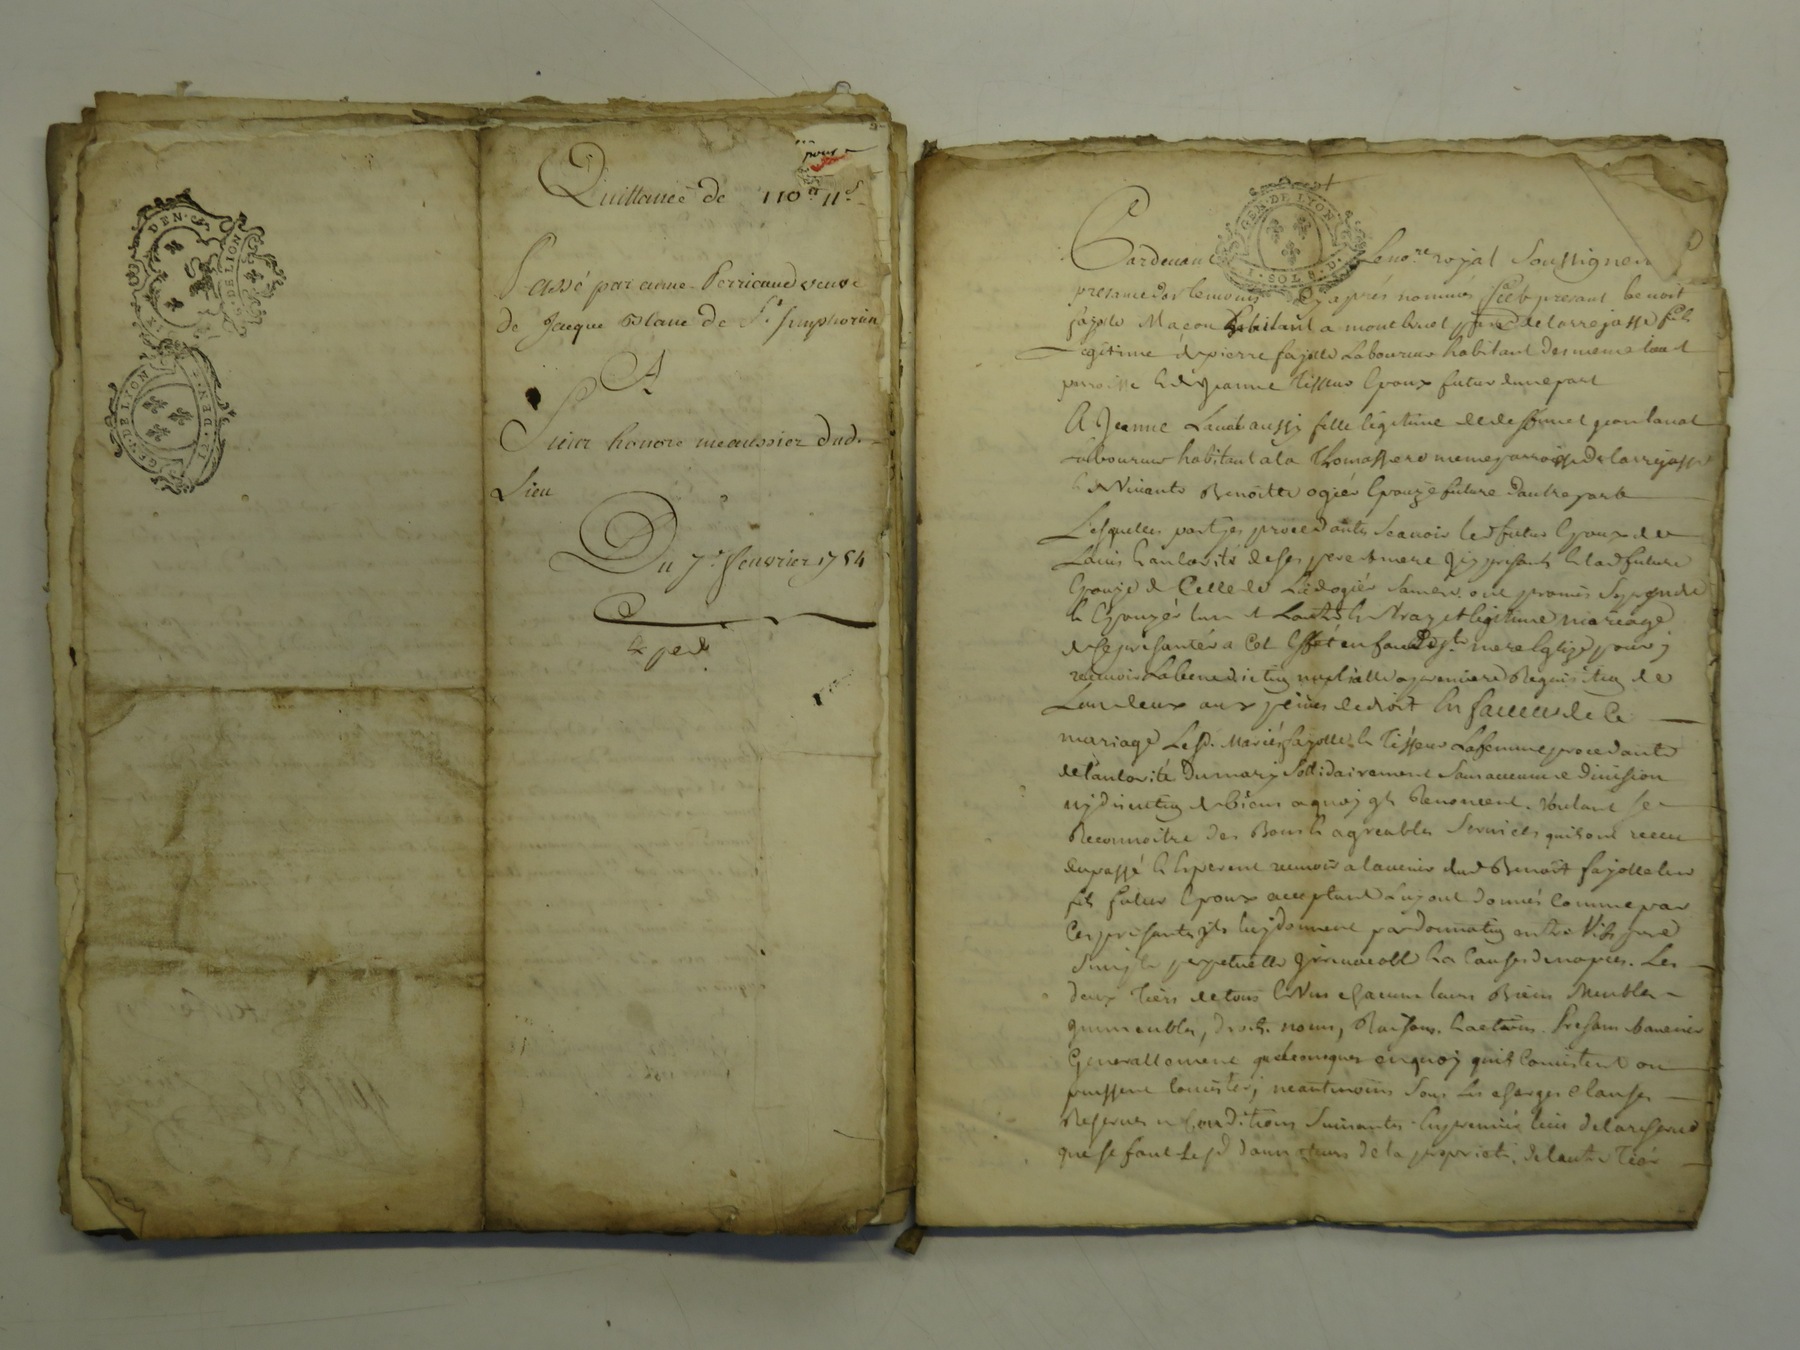 pour
Quittance de 110ᵗᵗ 11ˢ
Passé par anne Perricaud veuve
de Jacque Blanc de Sᵗ Simphorien
A
Sieur honoré meaussier dud.
Lieu
Du 7ᵉ fevrier 1754
GEN·DE LYON
G·DE LION
GEN·DE LYON
GEN·DE LYON
1·SOL 8·D·
Pardevant Le noʳᵉ royal Soussignez
presance des temoins cy apres nommes fut presant benoit
fayolle Macon habitant a montbruel psse de larrejasse fils
Legitime de pierre fayolle Laboureur habitant desmeme lieu et
parroisse & de Jeanne Tisseur Epoux futur dune part
& Jeanne aussy fille legitime de deffunct jean
Laboureur habitant a la Thomassere meme parroisse de larrejasse
& de Vivante Benoitte ogier Epouze future dautre part
Lesquelles parties procedantes Scavoir led futur Epoux de
Lavis & autorité de ses pere & mere icy presants & lad future
Epouze de Celle de Lad ogier Sa mere ont promis Se prendre
& Epouzer lun et Lautre en Vray et legitime mariage
& Se presenter a Cet Effet en face de Sᵗᵉ mere Eglize pour y
recevoir La benediction nuptialle a premiere Requisition de
Lun deux aux peines de droit En faveur de Ce
mariage Lesd. Mariés fayolle & Tisseur La femme procedante
de l'autorité du mary Sollidairement Sans aucune division
ny discution de biens a quoy ils Renoncent. Voulant se
Reconnoitre des Bons & agreables Services quils ont receu
du passé & Esperent recevoir a lavenir dud Benoit fayolle leur
fils futur Epoux acceptant Luy ont donnés Comme par
Ces presantes ils luy donnent par donnation entre Vifs pure
Simple perpetuelle irrevocable & a Cause de nopces. Les
deux Tiers de tous & Uns chacuns leurs Biens Meubles
immeubles, droits. noms, Raisons, & actions. Presans & avenir
Generallement quelconques en quoy quils Consistent ou
puissent Consister, neantmoins Sous Les charges Clauses
Reserves & Conditions Suivantes. En premier lieu de la reserve
que se font Lesd donnateurs de la proprieté, de l'autre Tiers